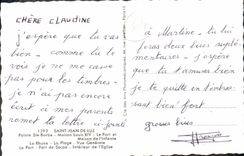 CHÈRE CLAUDINE
j'espère que tu vas
bien - comme tu le
vois je ne me casse
pas pour les timbres -
je n'ai pas encore
écrit à mes parents
remet ta lettre ci-jointe
1393 SAINT-JEAN-DE-LUZ
Pointe Ste-Barbe - Maison Louis XIV - Le Port et
Maison de l'Infante
La Rhune - La Plage - Vue Générale
Le Port - Port de Socoa - Intérieur de l'Eglise
à Martine - tu lui
feras deux bises
j'espère
que tu t'amuses bien
je t'embrasse
bien fort
grosses bises